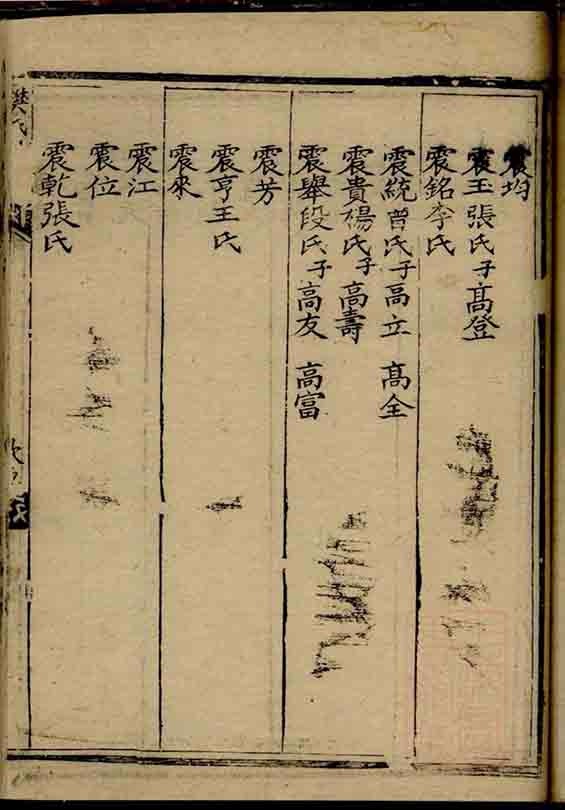 震均
震玉張氏子高登
震銘李氏
震統曾氏子高立 高全
震貴楊氏子高壽
震舉段氏子高友 高富
震芳
震亨王氏
震來
震江
震位
震乾張氏
樊氏